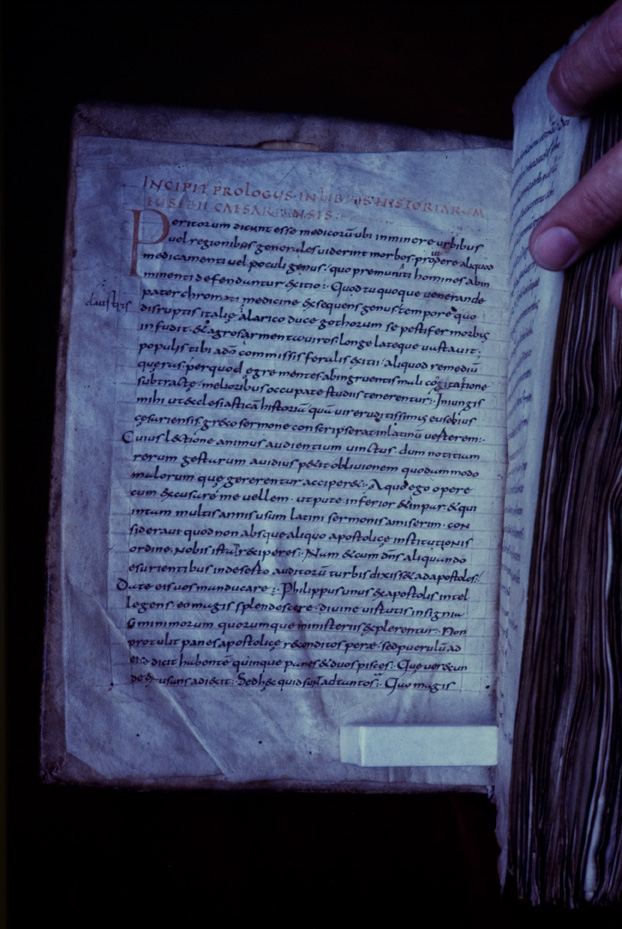 INCIPIT PROLOGUS IN LIBROS HISTORIARUM
EUSEBII CAESARIENSIS
Peritorum dicunt esse medicorũ ubi inminere urbibus
uel regionibus generales uiderint morbos· propere aliquod
medicamenti uel poculi genus· quo premuniti homines abin
minenti defendantur exitio· Quod tu quoque uenerande
pater chromati medicine exsequens genus tempore quo
claustris
disruptis italię alarico duce gothorum se pestifer morbus
infudit· & agros armenta uiros longe lateque uastauit·
populis tibi adõ commissis feralis exitii aliquod remediũ
querens· per quod egre mentes ab ingruentis mali cogitatione
subtractę· melioribus occupate studiis tenerentur· Iniungis
mihi ut ecclesiasticã historiam quã uir eruditissimus eusebius
cęsariensis greco sermone conscripserat in latinũ uerterem:
Cuius lectione animus audientium uinctus· dum notitiam
rerum gestarum auidius petit obliuionem quodammodo
malorum que gererentur acciper&· A quo ego opere
cum excusare me uellem· utpote inferior & inpar· & qui
in tam multis annis usum latini sermonis amiserim· con
sideraui quod non absque aliquo apostolice institutionis
ordine· nobis ista preciperes· Nam & cum dñs aliquando
esurientibus in deserto auditorũ turbis dixisset ad apostolos·
Date eis uos manducare· Philippus unus ex apostolis intel
legens· eo magis splendescere diuine uirtutis insignia
si minimorum quorumque ministeriis explerentur· Non
protulit panes apostolice reconditos pera· sed puerulũ ad
esse dicit habente quinque panes & duos pisces· Que uerecun
de excusans adiecit· Sed hec quid sunt ad tantos· Quo magis